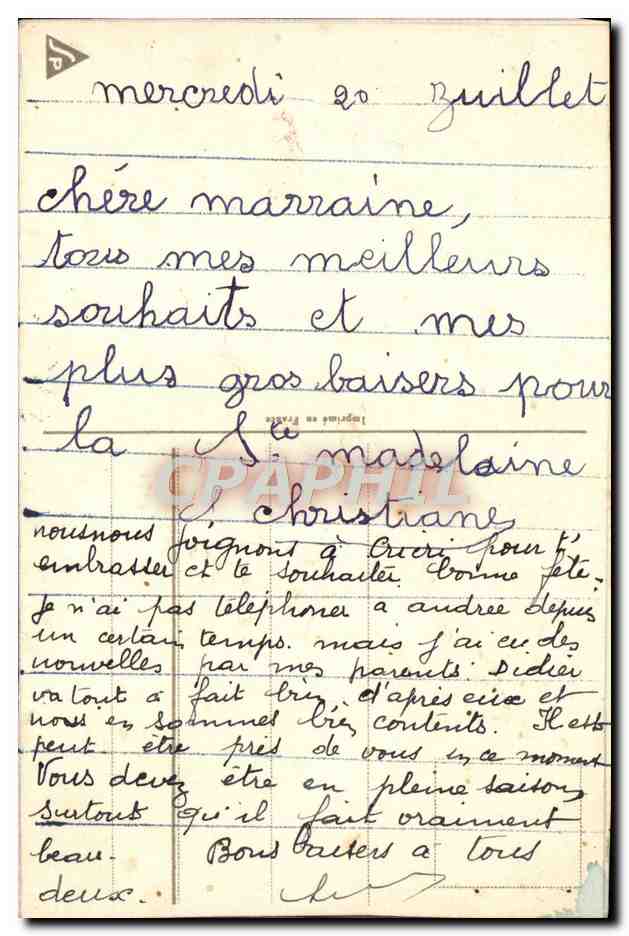 SP
mercredi 20 Juillet
chére marraine,
tous mes meilleurs
souhaits et mes
plus gros baisers pour
la Ste madelaine
Imprimé en France
CPAPHIL
Christiane
nous nous joignons à Cricri pour t'
embrasser et te souhaiter bonne fête.
Je n'ai pas téléphoner a andrée depuis
un certain temps. mais j'ai eu des
nouvelles par mes parents. Didier
va tout a fait bien d'après eux et
nous en sommes bien contents. Il est
peut être près de vous en ce moment
Vous devez être en pleine saison
surtout qu'il fait vraiment
beau. Bons baisers à tous
deux.